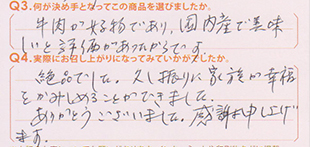 Q3.何が決め手となってこの商品を選びましたか。
牛肉が好物であり、国内産で美味
しいと評価があったからです。
Q4.実際にお召し上がりになってみていかがでしたか。
絶品でした。久し振りに家族が幸福
をかみしめることができました。
ありがとうございました。感謝お申し上げ
ます。